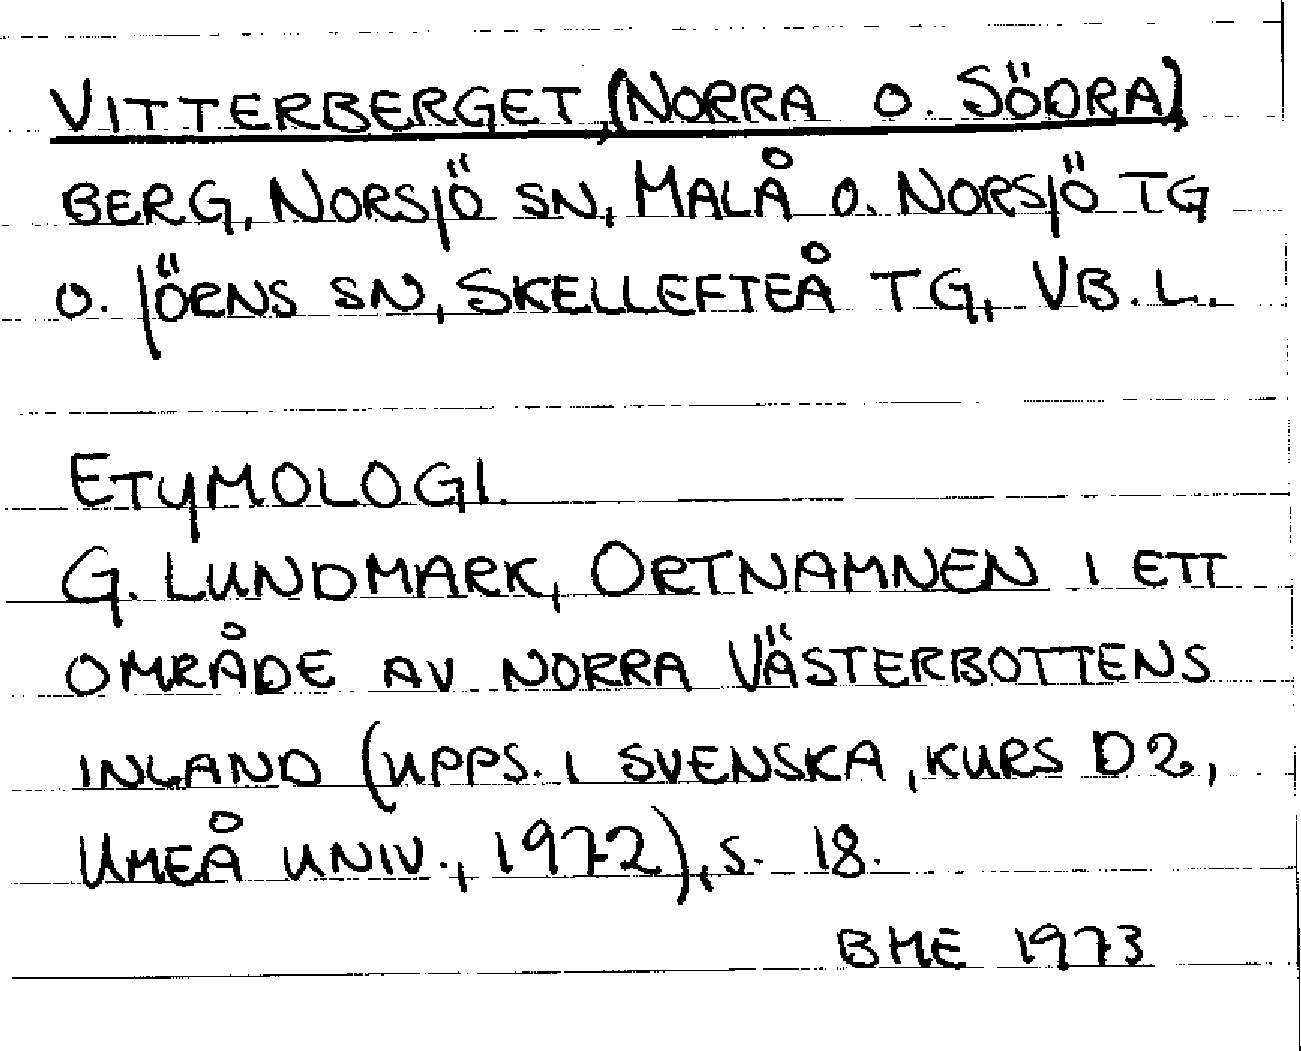 VITTERBERGET, (NORRA O. SÖDRA)
BERG, NORSJÖ SN, MALÅ O. NORSJÖ TG
O. JÖRNS SN, SKELLEFTEÅ TG, VB. L.
ETYMOLOGI.
G. LUNDMARK, ORTNAMNEN I ETT
OMRÅDE AV NORRA VÄSTERBOTTENS
INLAND (UPPS. I SVENSKA, KURS D2,
UMEÅ UNIV., 1972), S. 18.
BME 1973